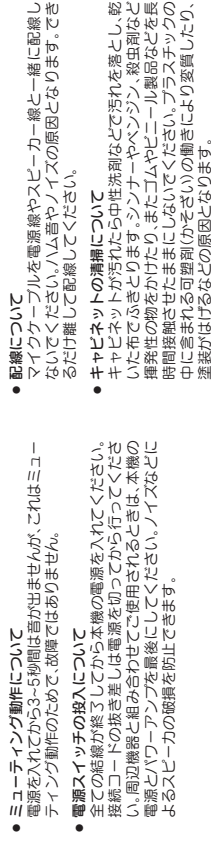 ● ミューティング動作について
電源を入れてから3~5秒間は音が出ませんが、これはミュー
ティング動作のためで、故障ではありません。
● 電源スイッチの投入について
全ての結線が終了してから本機の電源を入れてください。
接続コードの抜き差しは電源を切ってから行ってくださ
い。周辺機器と組み合わせてご使用されるときは、本機の
電源とパワーアンプを最後にしてください。ノイズなどに
よるスピーカの破損を防止できます。
● 配線について
マイクケーブルを電源線やスピーカー線と一緒に配線し
ないでください。ハム音やノイズの原因となります。でき
るだけ離して配線してください。
● キャビネットの清掃について
キャビネットが汚れたら中性洗剤などで汚れを落とし、乾
いた布でふきとります。シンナーやベンジン、殺虫剤など
揮発性の物をかけたり、またゴムやビニール製品などを長
時間接触させたままにしないでください。プラスチックの
中に含まれる可塑剤(かそざい)の働きにより変質したり、
塗装がはげるなどの原因となります。